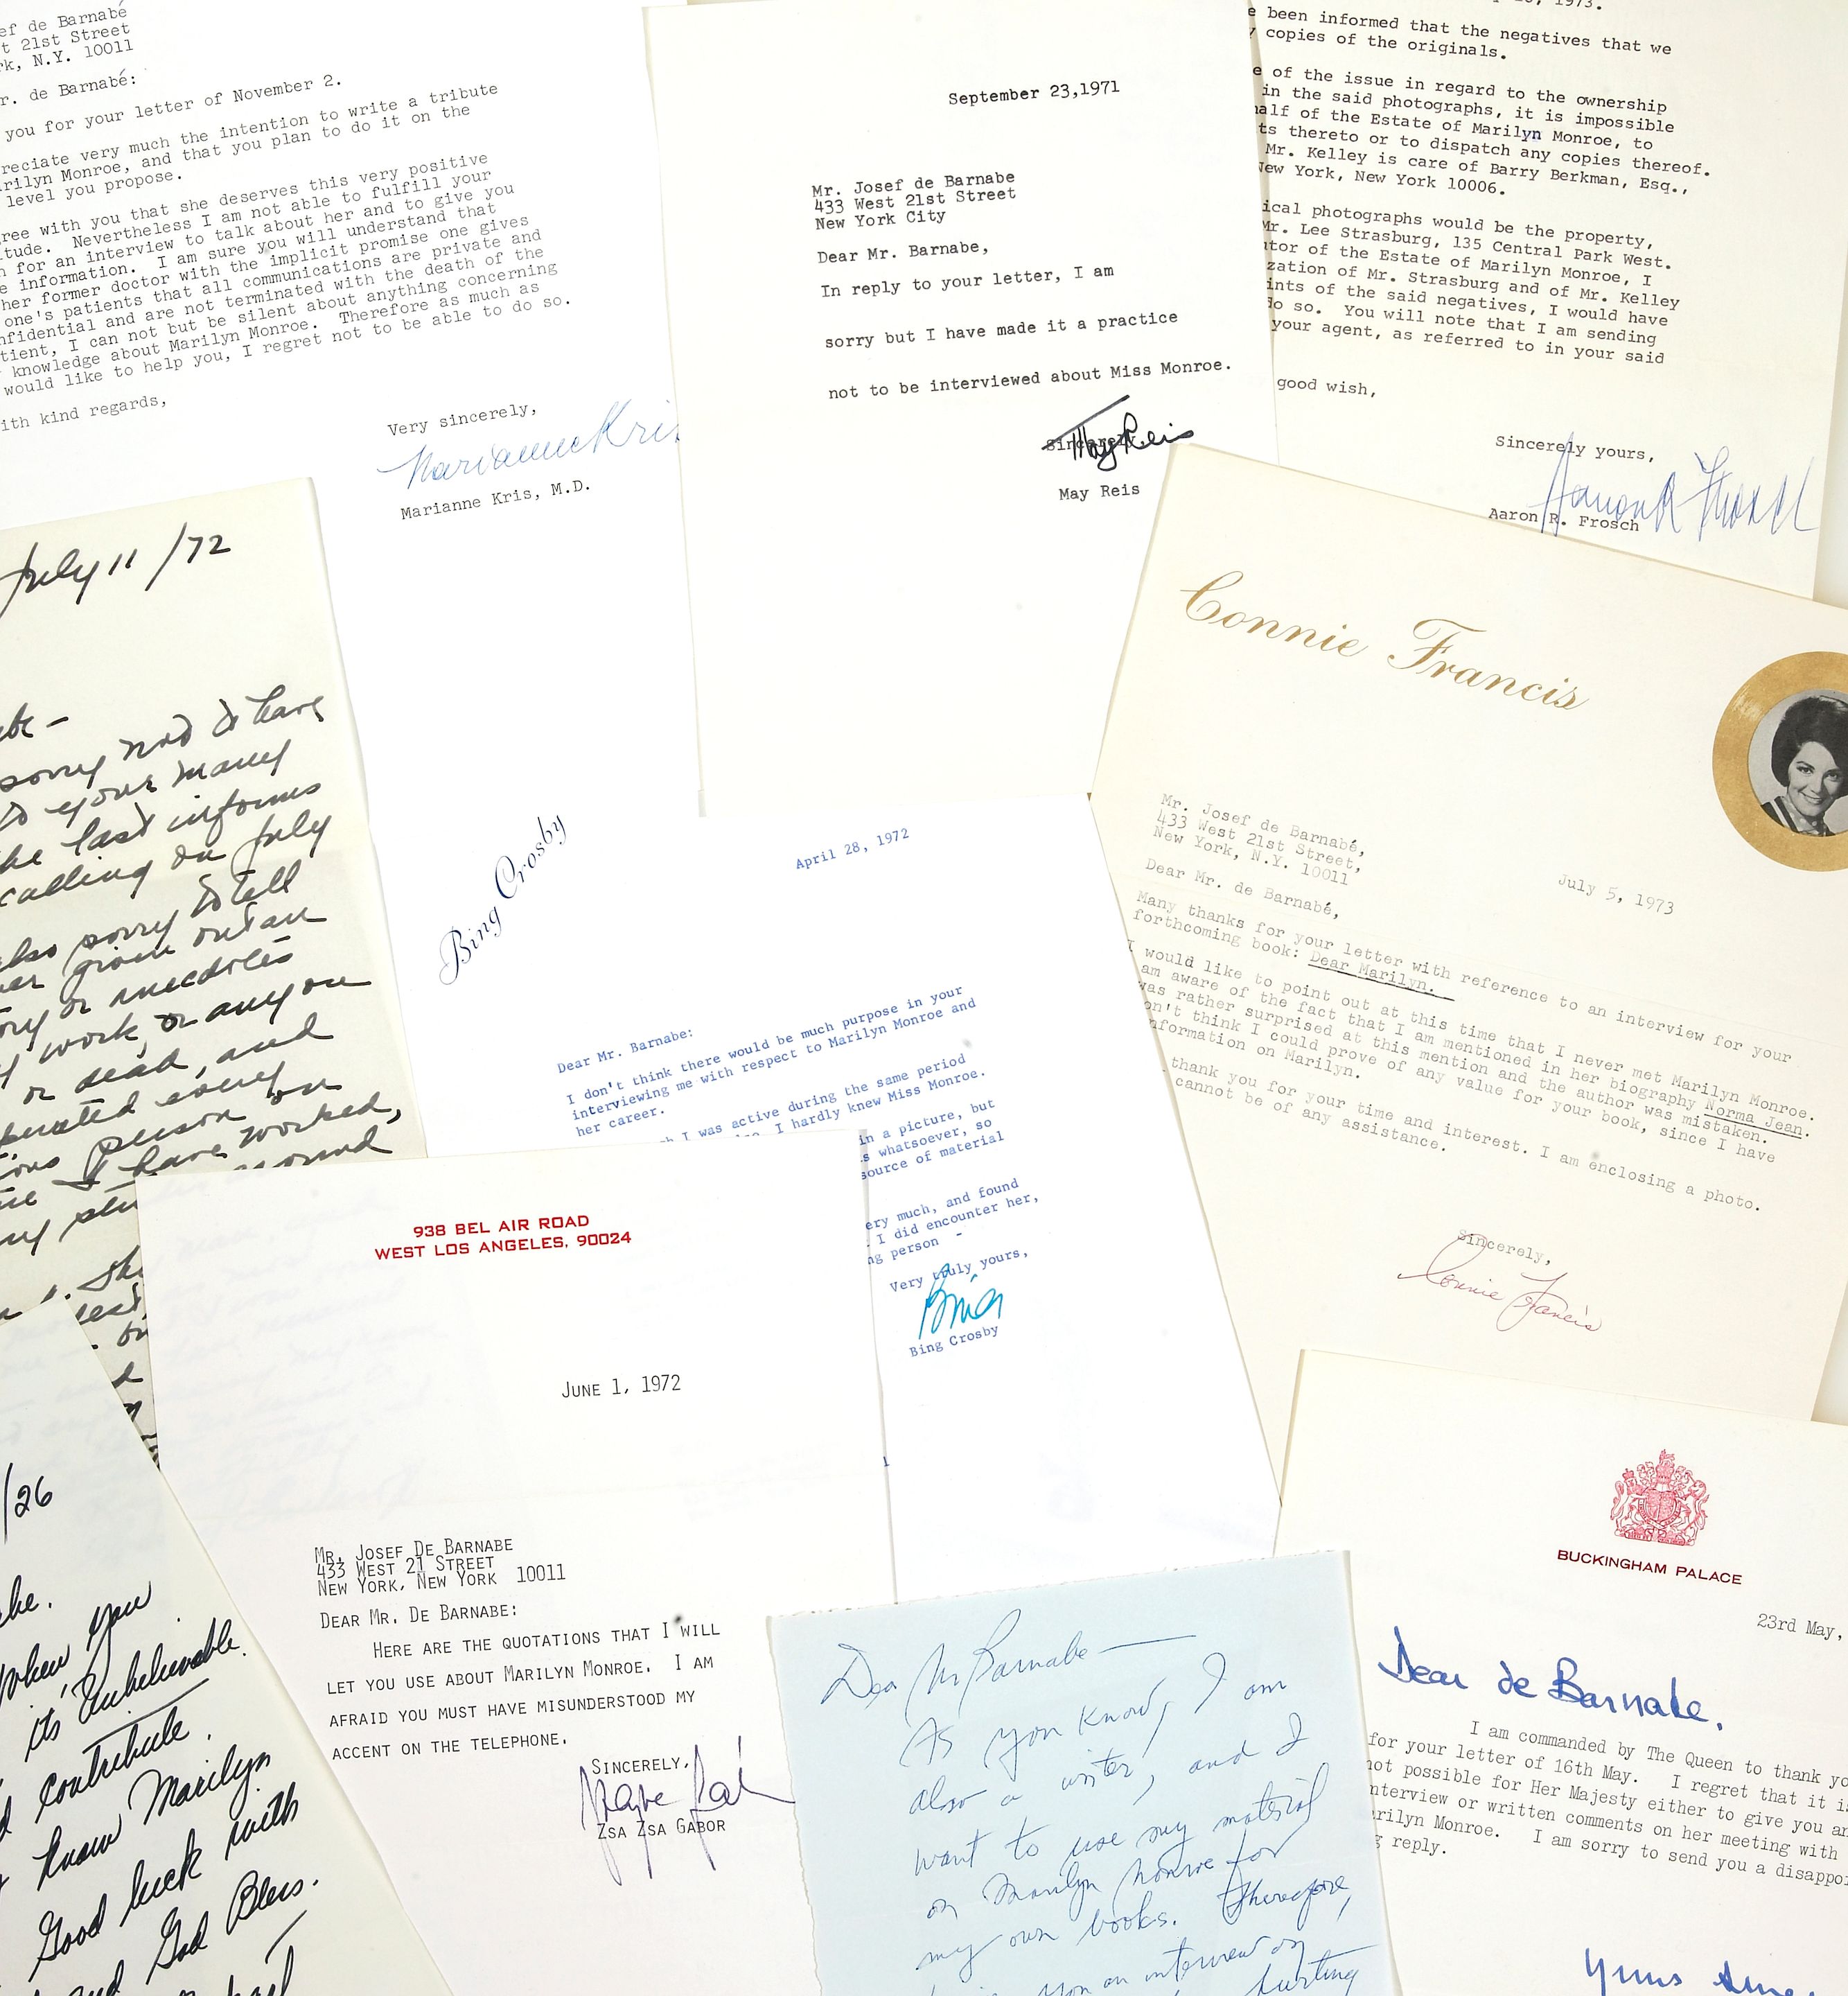 ef de Barnabé
t 21st Street
rk, N.Y. 10011
r. de Barnabé:
you for your letter of November 2.
reciate very much the intention to write a tribute
rilyn Monroe, and that you plan to do it on the
level you propose.
ree with you that she deserves this very positive
itude. Nevertheless I am not able to fulfill your
n for an interview to talk about her and to give you
e information. I am sure you will understand that
her former doctor with the implicit promise one gives
one's patients that all communications are private and
nfidential and are not terminated with the death of the
tient, I can not but be silent about anything concerning
knowledge about Marilyn Monroe. Therefore as much as
would like to help you, I regret not to be able to do so.
ith kind regards,
Very sincerely,
Marianne Kris
Marianne Kris, M.D.
September 23,1971
Mr. Josef de Barnabe
433 West 21st Street
New York City
Dear Mr. Barnabe,
In reply to your letter, I am
sorry but I have made it a practice
not to be interviewed about Miss Monroe.
Sincerely,
May Reis
May Reis
1973.
e been informed that the negatives that we
y copies of the originals.
e of the issue in regard to the ownership
in the said photographs, it is impossible
half of the Estate of Marilyn Monroe, to
ts thereto or to dispatch any copies thereof.
Mr. Kelley is care of Barry Berkman, Esq.,
New York, New York 10006.
ical photographs would be the property,
Mr. Lee Strasburg, 135 Central Park West.
utor of the Estate of Marilyn Monroe, I
zation of Mr. Strasburg and of Mr. Kelley
ints of the said negatives, I would have
do so. You will note that I am sending
your agent, as referred to in your said
good wish,
Sincerely yours,
Aaron R Frosch
Aaron R. Frosch
July 11/72
sorry not to have
to your many
he last informs
calling on July
also sorry to tell
given out an
ory or anecdotes
work, or anyone
or dead, and
every
person on
I have worked,
Connie Francis
Mr. Josef de Barnabé,
433 West 21st Street,
New York, N.Y. 10011
July 5, 1973
Dear Mr. de Barnabé,
Many thanks for your letter with reference to an interview for your
forthcoming book: Dear Marilyn.
I would like to point out at this time that I never met Marilyn Monroe.
am aware of the fact that I am mentioned in her biography Norma Jean.
was rather surprised at this mention and the author was mistaken.
on't think I could prove of any value for your book, since I have
nformation on Marilyn.
thank you for your time and interest. I am enclosing a photo.
cannot be of any assistance.
Sincerely,
Connie Francis
Bing Crosby
April 28, 1972
Dear Mr. Barnabe:
I don't think there would be much purpose in your
interviewing me with respect to Marilyn Monroe and
her career.
h I was active during the same period
I hardly knew Miss Monroe.
in a picture, but
s whatsoever, so
source of material
ery much, and found
. I did encounter her,
ng person -
Very truly yours,
Bing
Bing Crosby
938 BEL AIR ROAD
WEST LOS ANGELES, 90024
JUNE 1, 1972
MR. JOSEF DE BARNABE
433 WEST 21 STREET
NEW YORK, NEW YORK 10011
DEAR MR. DE BARNABE:
HERE ARE THE QUOTATIONS THAT I WILL
LET YOU USE ABOUT MARILYN MONROE. I AM
AFRAID YOU MUST HAVE MISUNDERSTOOD MY
ACCENT ON THE TELEPHONE.
SINCERELY,
ZSA ZSA GABOR
/26
When you
it's Unbelievable.
contribute.
know Marilyn
Good luck with
and God Bless.
Dear Mr Barnabe —
As you know, I am
also a writer, and I
want to use my material
on Marilyn Monroe for
my own books. Therefore,
you an interview or
BUCKINGHAM PALACE
23rd May,
Dear de Barnabe,
I am commanded by The Queen to thank yo
for your letter of 16th May. I regret that it is
not possible for Her Majesty either to give you an
nterview or written comments on her meeting with
arilyn Monroe. I am sorry to send you a disappoi
g reply.
Yours